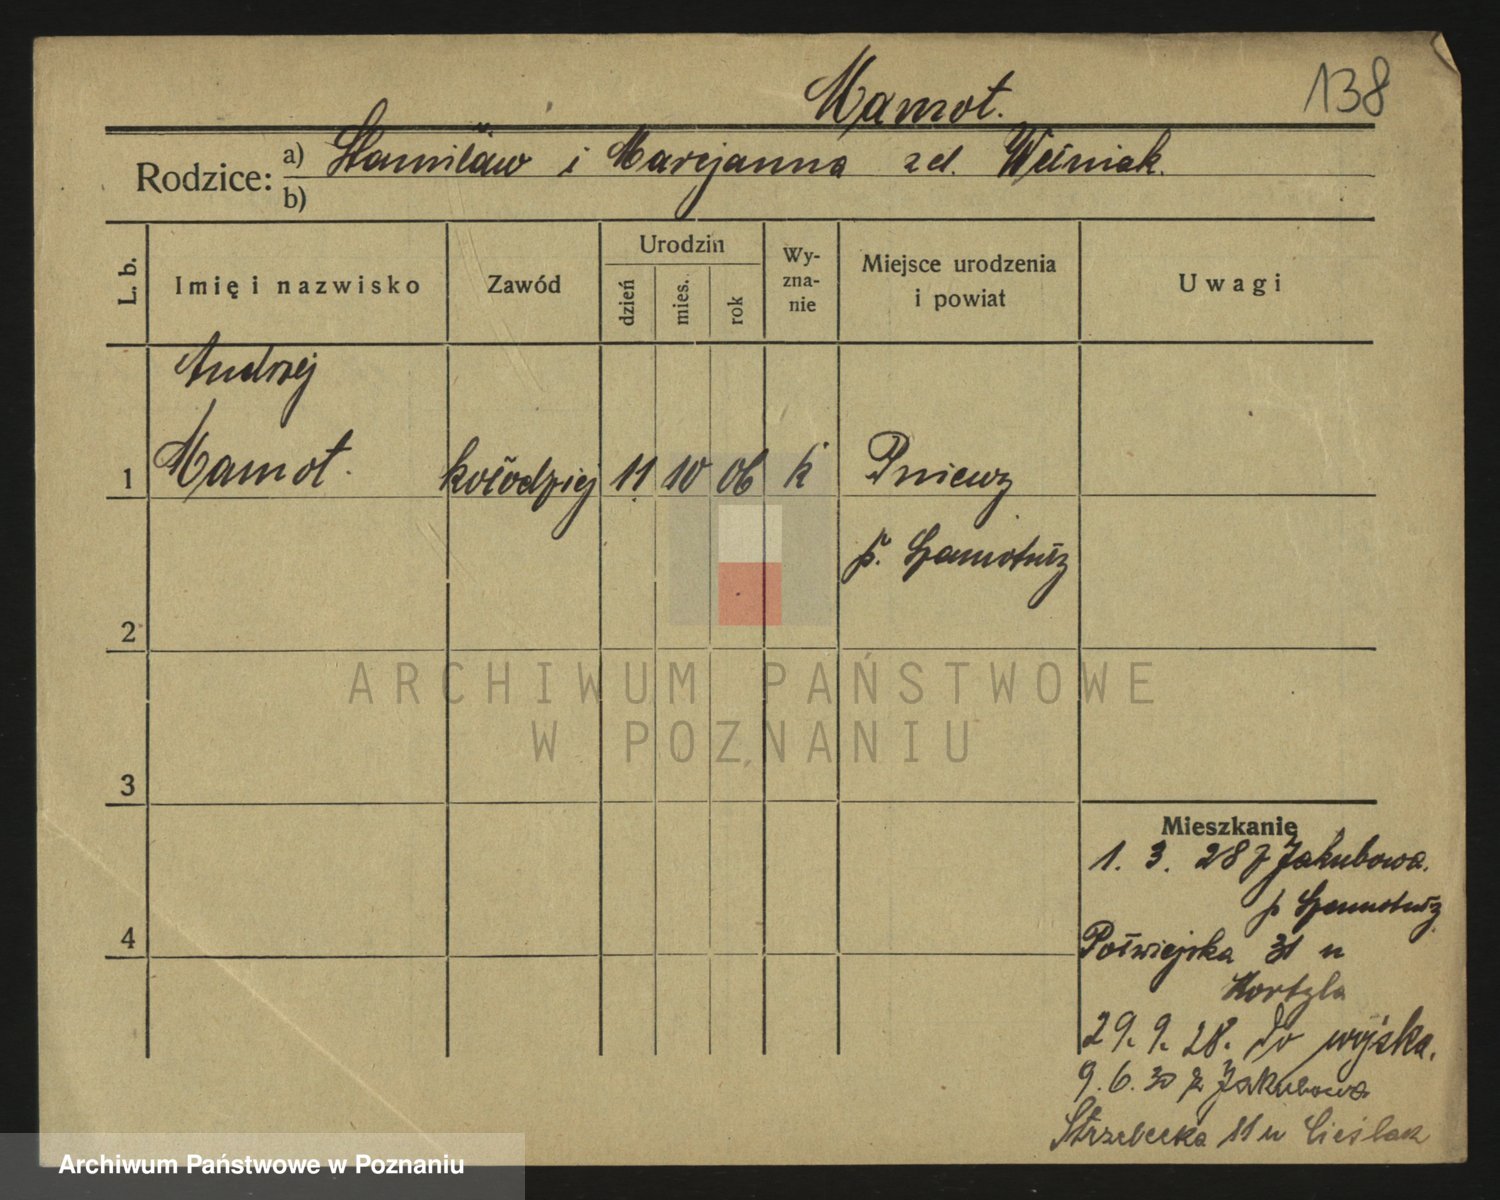 138
Mamot.
Rodzice: a) Stanisław i Maryanna zd. Woźniak.
b)
L. b. Imię i nazwisko Zawód Urodzin dzień mies. rok Wy-zna-nie Miejsce urodzenia i powiat Uwagi
Andrzej
1 Mamot. kołodziej 11 10 06 k Pniewy
p. Szamotuły
2
ARCHIWUM PAŃSTWOWE
W POZNANIU
3
Mieszkanie
1. 3. 28 z Jakubowa.
p Szamotuły
4
Półwiejska 31 u
29. 9. 28. do wojska.
9. 6. 30 z Jakubowa
Strzelecka 11 u Cieślak
Archiwum Państwowe w Poznaniu